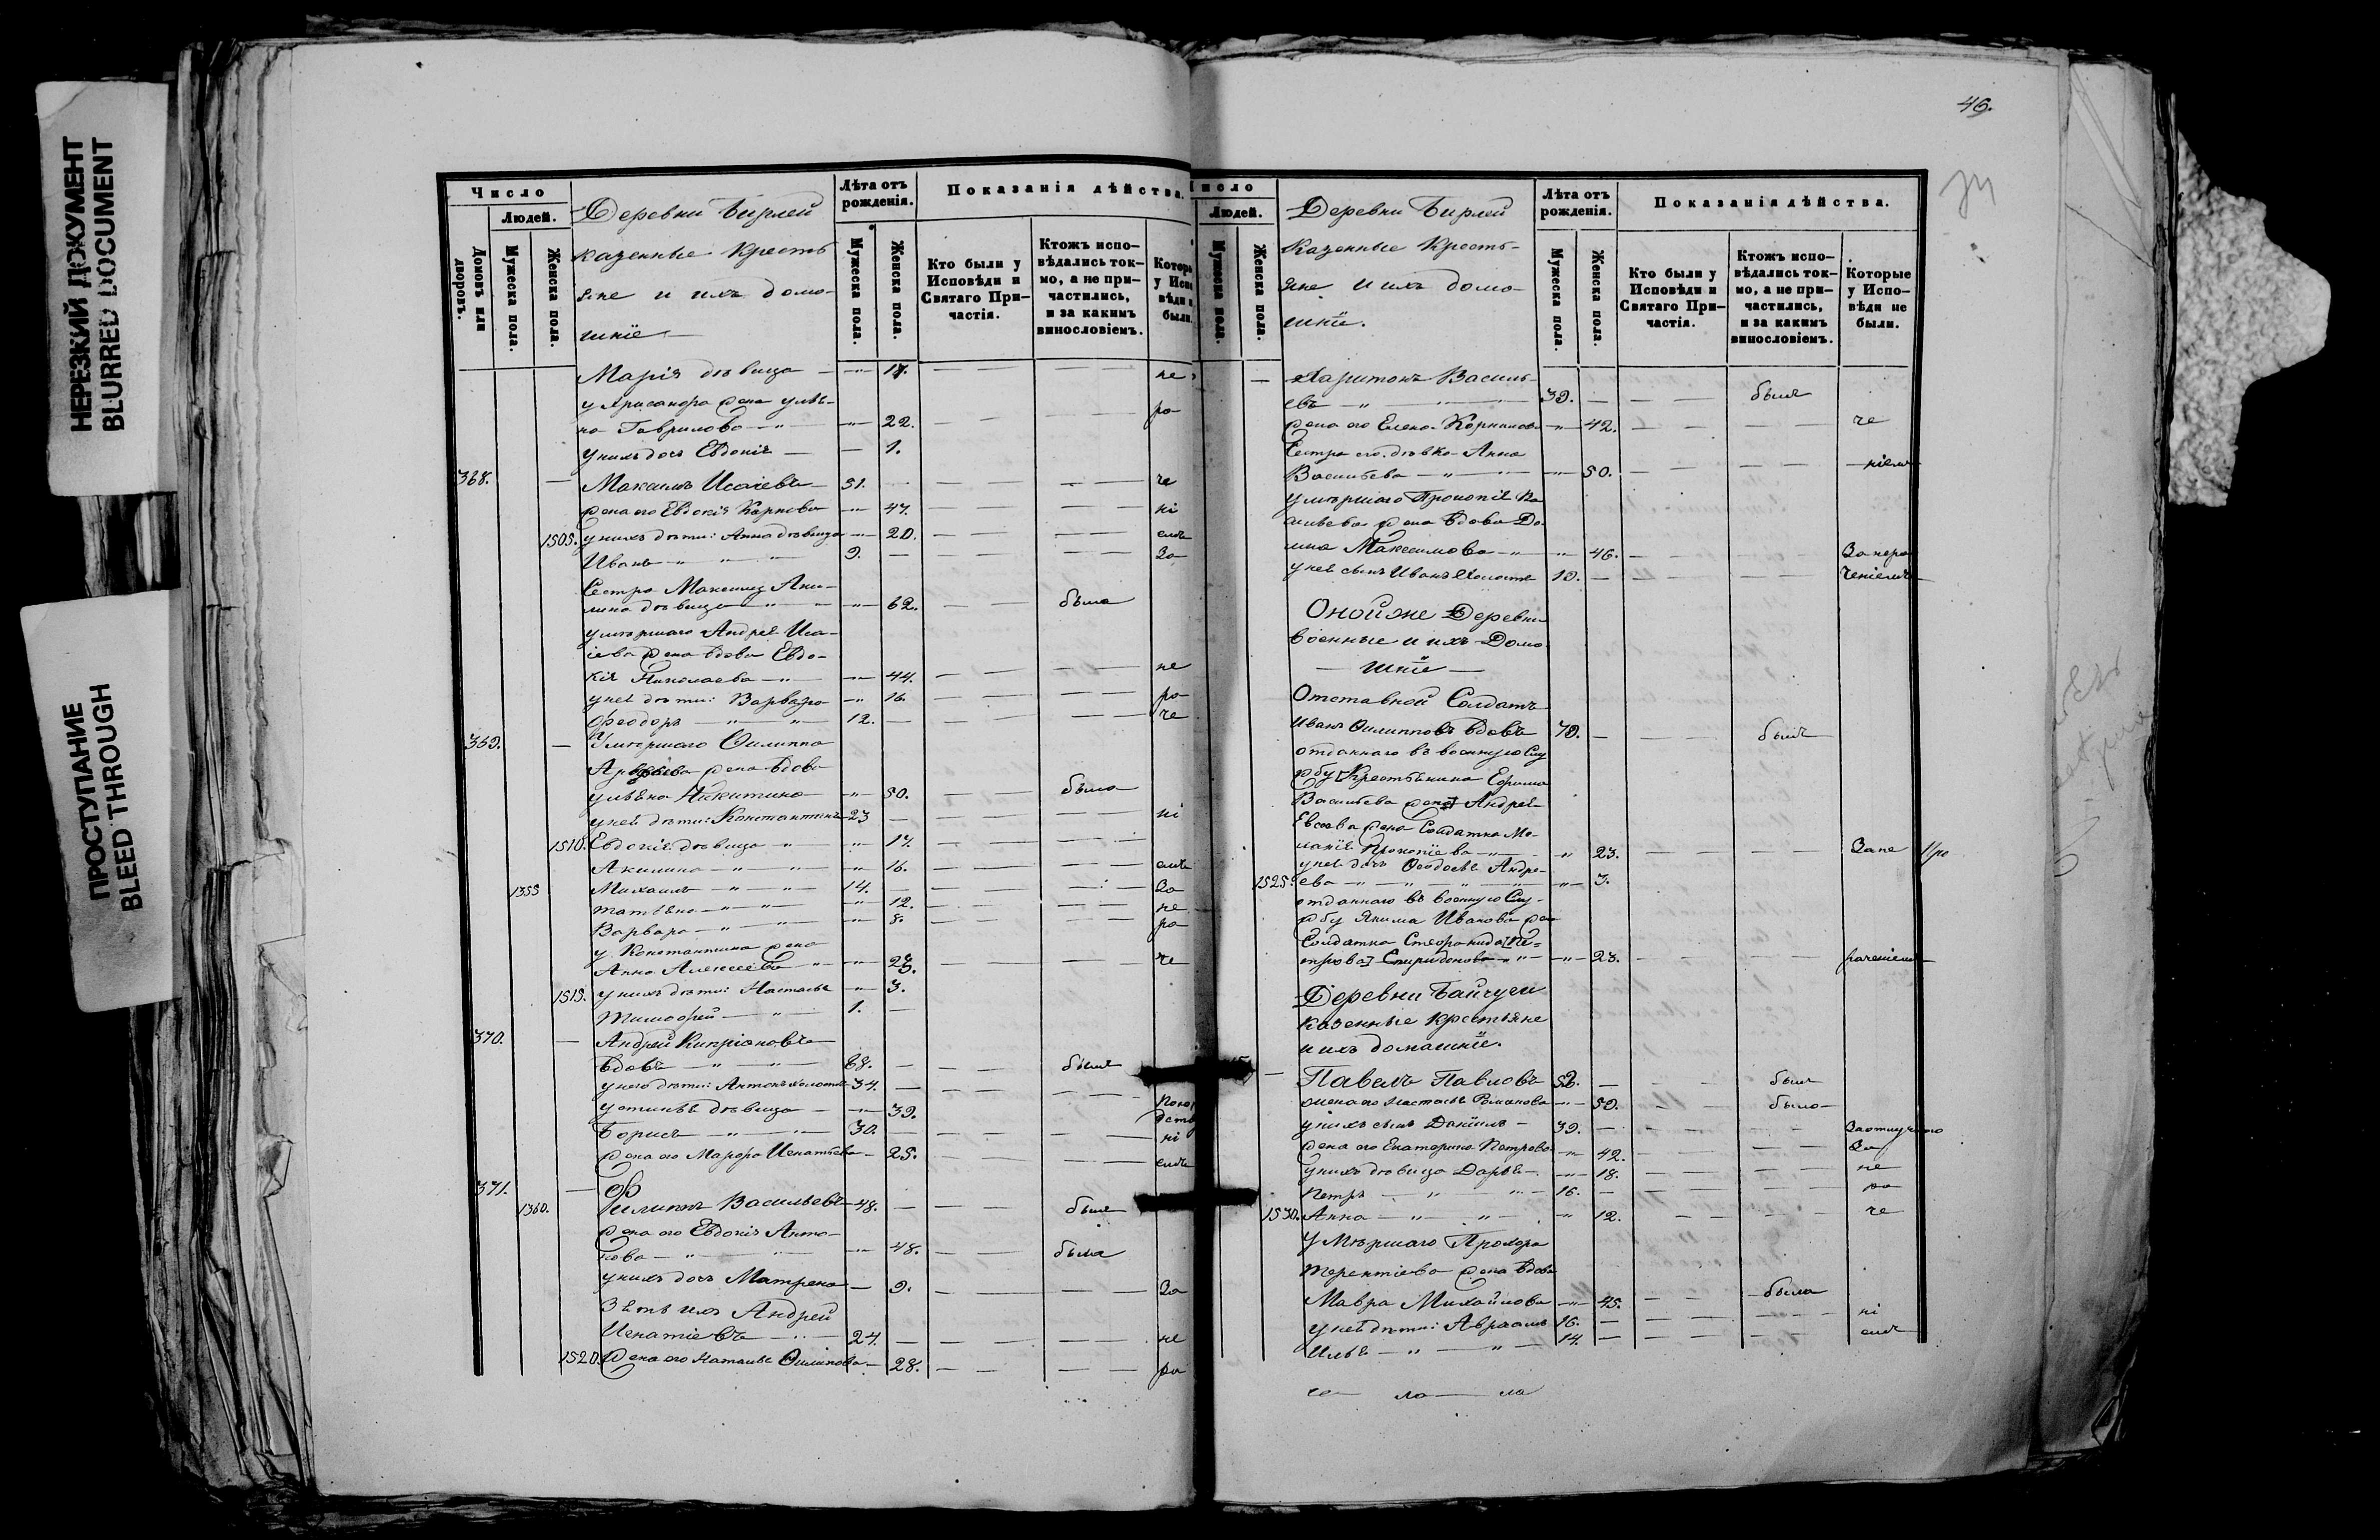 НЕРЕЗКИЙ ДОКУМЕНТ
BLURRED DOCUMENT
ПРОСТУПАНИЕ
BLEED THROUGH
Число
Людей.
Домовъ или дворовъ.
Мужеска пола.
Женска пола.
Деревни Бирлей
казенные кресть
яне и ихъ дома-
шніе
Лѣта отъ рожденія.
Мужеска пола.
Женска пола.
Показанія дѣйства.
Кто были у Исповѣди и Святаго При-частія.
Ктожъ испо-вѣдались ток-мо, а не при-частились, и за какимъ винословіемъ.
Которы у Испо вѣди н были.
Марія дѣвица — 17. не
у Александра жена улья-
на Гаврилова — 22. ра
у нихъ дочь Евдокія — 1.
368. Максимъ Исаіевъ 51. че
жена его Евдокія Карпова 47. ні
1505. у нихъ дѣти: Анна дѣвица 20. емъ
Иванъ 9. За
Сестра Максима Аки-
лина дѣвица 62. была
умершаго Андрея Иса-
іева жена вдова Евдо-
кія Николаева 44. не
у ней дѣти: Варвара 16 ра
Ѳеодоръ 12. че
369. Умершаго Филиппа
жена вдова
ульяна Никитина 50. была
у ней дѣти: Константинъ 23 ні
1510. Евдокія дѣвица 17.
Акилина 16. емъ
1355 Михаилъ 14. За
татьяна 12. не
Варвара 8. ра
у Константина жена
Анна Алексѣева че
1515. у нихъ дѣти: Настасья 3.
Тимофей 1.
370. Андрей Кипріановъ
вдовъ 68. былъ
у него дѣти: Антонъ холостъ 34.
устинья дѣвица 39.
Борисъ 30. ні
жена его Марфа Игнатьева 25. емъ
371. Ф
1360. илиппъ Васильевъ 48. былъ
жена его Евдокія Анто-
нова 48. была
у нихъ дочь Матрена 9. За
Зять ихъ Андрей
Игнатіевъ 24. не
1520. Жена его Наталья Филипова 28. ра
46.
исло
Людей.
Мужеска пола.
Женска пола.
Деревни Бирлей
казенные кресть-
яне и ихъ дома-
шніе.
Лѣта отъ рожденія.
Мужеска пола.
Женска пола.
Показанія дѣйства.
Кто были у Исповѣди и Святаго При-частія.
Ктожъ испо-вѣдались ток-мо, а не при-частились, и за какимъ винословіемъ.
Которые у Испо-вѣди не были.
Харитонъ Василь-
евъ 39. былъ
жена его Елена Корнилова 42. че
Сестра его дѣвка Анна
Васильева 50. ніемъ
умершаго Прокопія Ва
сильева жена вдова До-
мна Максимова 46. За нера
у ней сынъ Иванъ холостъ 19. ченіемъ
Онойже Деревни
военные и ихъ Дома
шніе
Отставной Солдатъ
Иванъ Филипповъ вдовъ 70. былъ
отданнаго въ военную Слу
жбу [крестьянина Ефима
Васильева жена] Андрея
Евсеева жена Солдатка Ме-
ланія Прокопіева 23. За не
у ней дочь Ѳеодосья Андре-
1525. ева 3.
отданнаго въ военную Слу-
жбу Якима Иванова жена
Солдатка Стефанида [Пе-
трова] Спиридонова 23. раченіемъ
Деревни Байчуги
казенные крестьяне
и ихъ домашніе.
Павелъ Павловъ былъ
жена его Настасья Романова 50. была
у нихъ сынъ Даніилъ 39. За отлучкою
жена его Екатерина Петрова 42. За
у нихъ дѣвица Дарья 18. не
Петръ 16. ра
1530. Анна 12. че
Умершаго Прохора
терентіева жена вдова
Мавра Михайлова 45. была
у ней дѣти: Авраамъ 16. ні
Илья 14. емъ